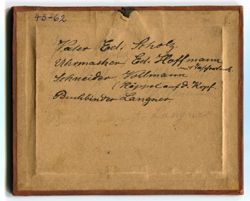 43-62
Vater Ed. Scholz
Uhrmacher Ed. Hoffmann
Schneider Vollmann
Käppel auf d. Kopf
Buchbinder Langner
Langner